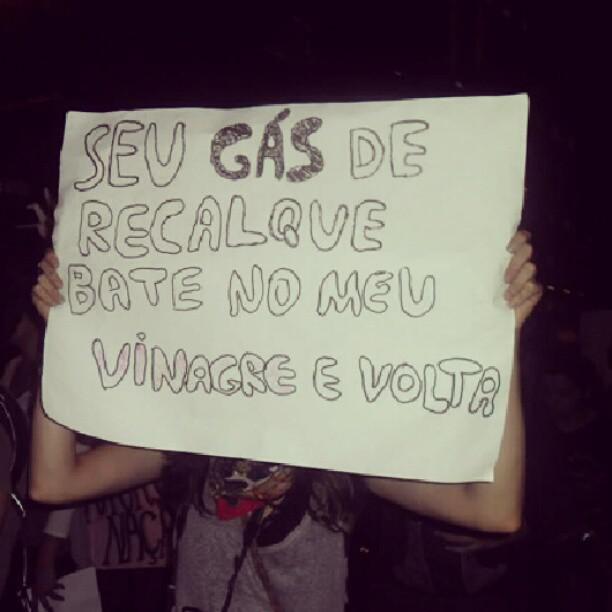 SEU GÁS DE
RECALQUE
BATE NO MEU
VINAGRE E VOLTA
NAÇÃ